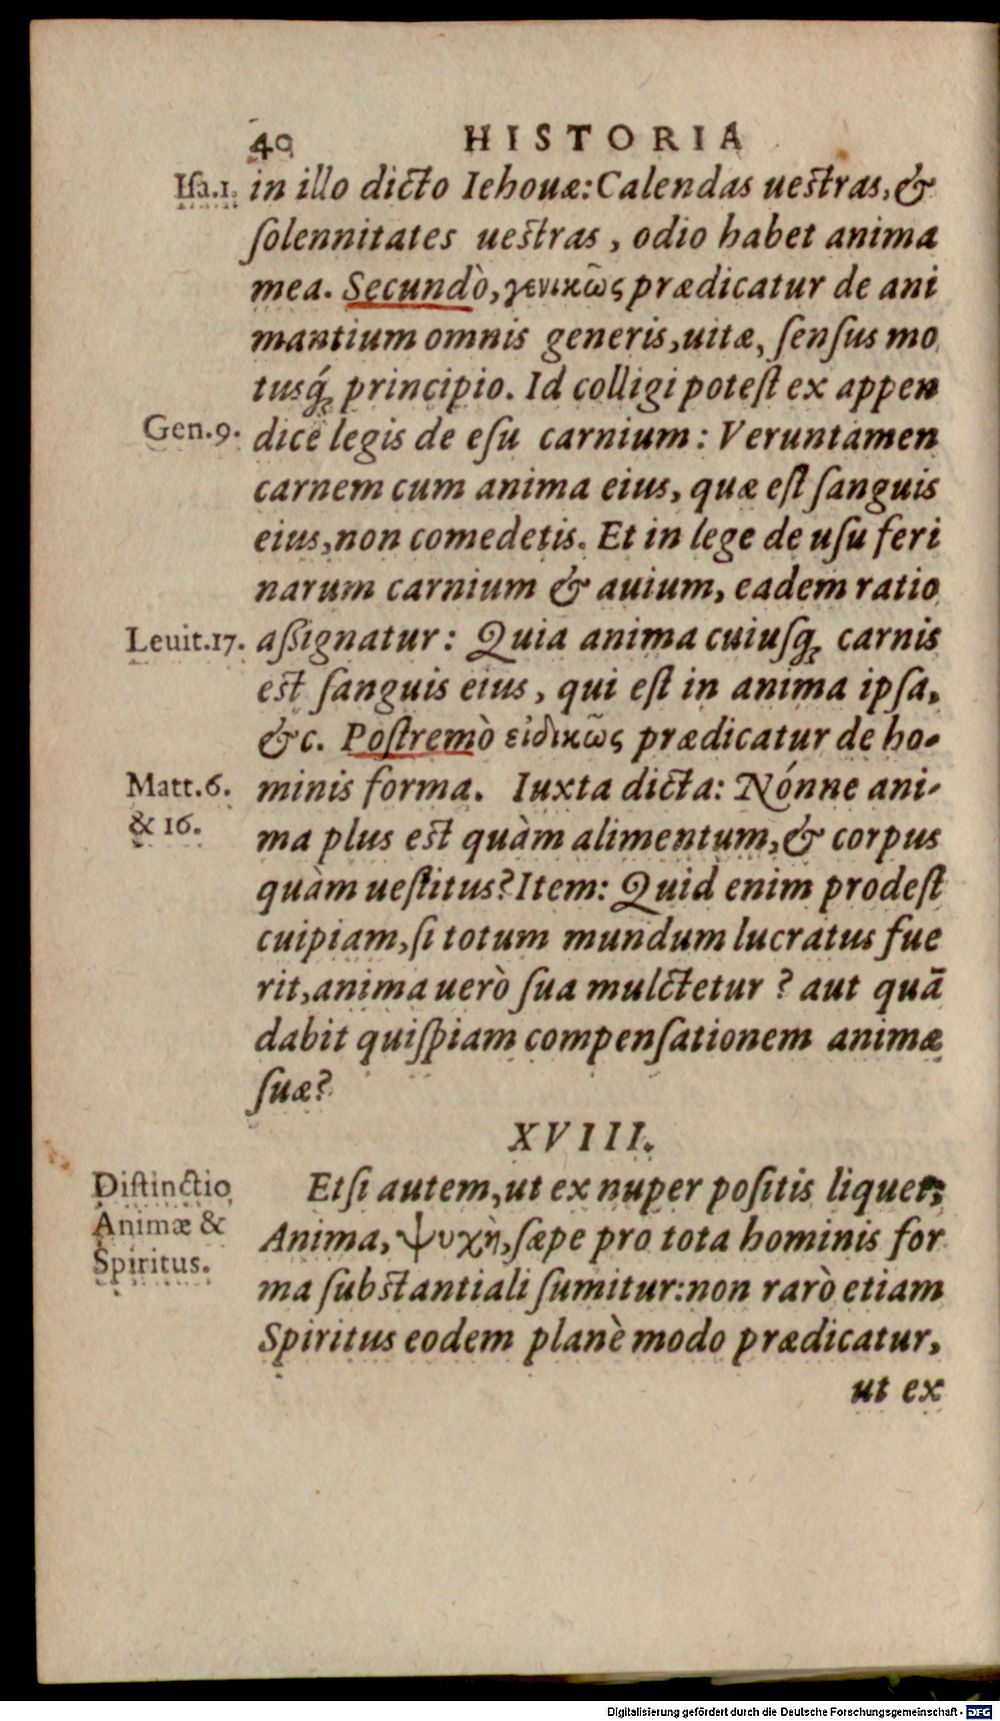 40 HISTORIA
Iſa.1. in illo dicto Iehouæ: Calendas ueſtras, &
ſolennitates ueſtras, odio habet anima
mea. Secundò, γενικῶς prædicatur de ani
mantium omnis generis, uitæ, ſenſus mo
tusq́ꝫ principio. Id colligi poteſt ex appen
Gen.9. dice legis de eſu carnium: Veruntamen
carnem cum anima eius, quæ eſt ſanguis
eius, non comedetis. Et in lege de uſu feri
narum carnium & auium, eadem ratio
Leuit.17. aſsignatur: Quia anima cuiuſqꝫ carnis
eſt ſanguis eius, qui eſt in anima ipſa,
&c. Poſtremò εἰδικῶς prædicatur de ho-
Matt.6. minis forma. Iuxta dicta: Nónne ani-
& 16. ma plus eſt quàm alimentum, & corpus
quàm ueſtitus? Item: Quid enim prodeſt
cuipiam, ſi totum mundum lucratus fue
rit, anima uerò ſua mulctetur? aut quā
dabit quiſpiam compenſationem animæ
ſuæ?
XVIII.
Diſtinctio Etſi autem, ut ex nuper poſitis liquet,
Animæ & Anima, ψυχὴ, ſæpe pro tota hominis for
Spiritus. ma ſubſtantiali ſumitur: non rarò etiam
Spiritus eodem planè modo prædicatur,
ut ex
Digitalisierung gefördert durch die Deutsche Forschungsgemeinschaft - DFG